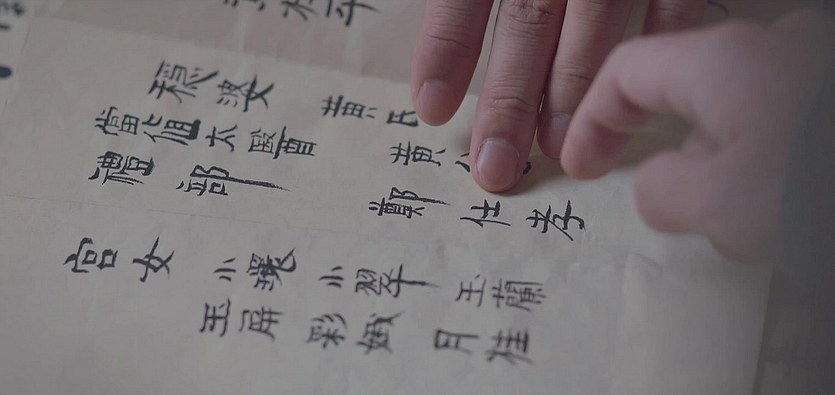 穩婆 黃氏
當值太醫 黃
禮部 鄭仕孝
宮女 小瓊 小翠 玉蘭
玉屏 彩娥 月桂